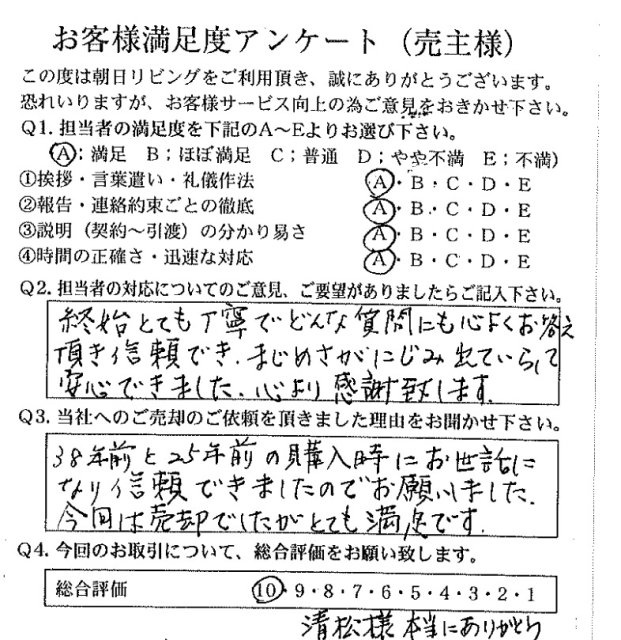 お客様満足度アンケート（売主様）
この度は朝日リビングをご利用頂き、誠にありがとうございます。
恐れいりますが、お客様サービス向上の為ご意見をおきかせ下さい。
Q1. 担当者の満足度を下記のA～Eよりお選び下さい。
（A；満足 B；ほぼ満足 C；普通 D；やや不満 E；不満）
①挨拶・言葉遣い・礼儀作法 A・B・C・D・E
②報告・連絡約束ごとの徹底 A・B・C・D・E
③説明（契約～引渡）の分かり易さ A・B・C・D・E
④時間の正確さ・迅速な対応 A・B・C・D・E
Q2. 担当者の対応についてのご意見、ご要望がありましたらご記入下さい。
終始とても丁寧でどんな質問にも心よくお答え
頂き信頼でき、まじめさがにじみ出ていらして
安心できました。心より感謝致します。
Q3. 当社へのご売却のご依頼を頂きました理由をお聞かせ下さい。
38年前と25年前の購入時にお世話に
なり信頼できましたのでお願いしました。
今回は売却でしたがとても満足です。
Q4. 今回のお取引について、総合評価をお願い致します。
総合評価 10・9・8・7・6・5・4・3・2・1
清松様 本当にありがとう